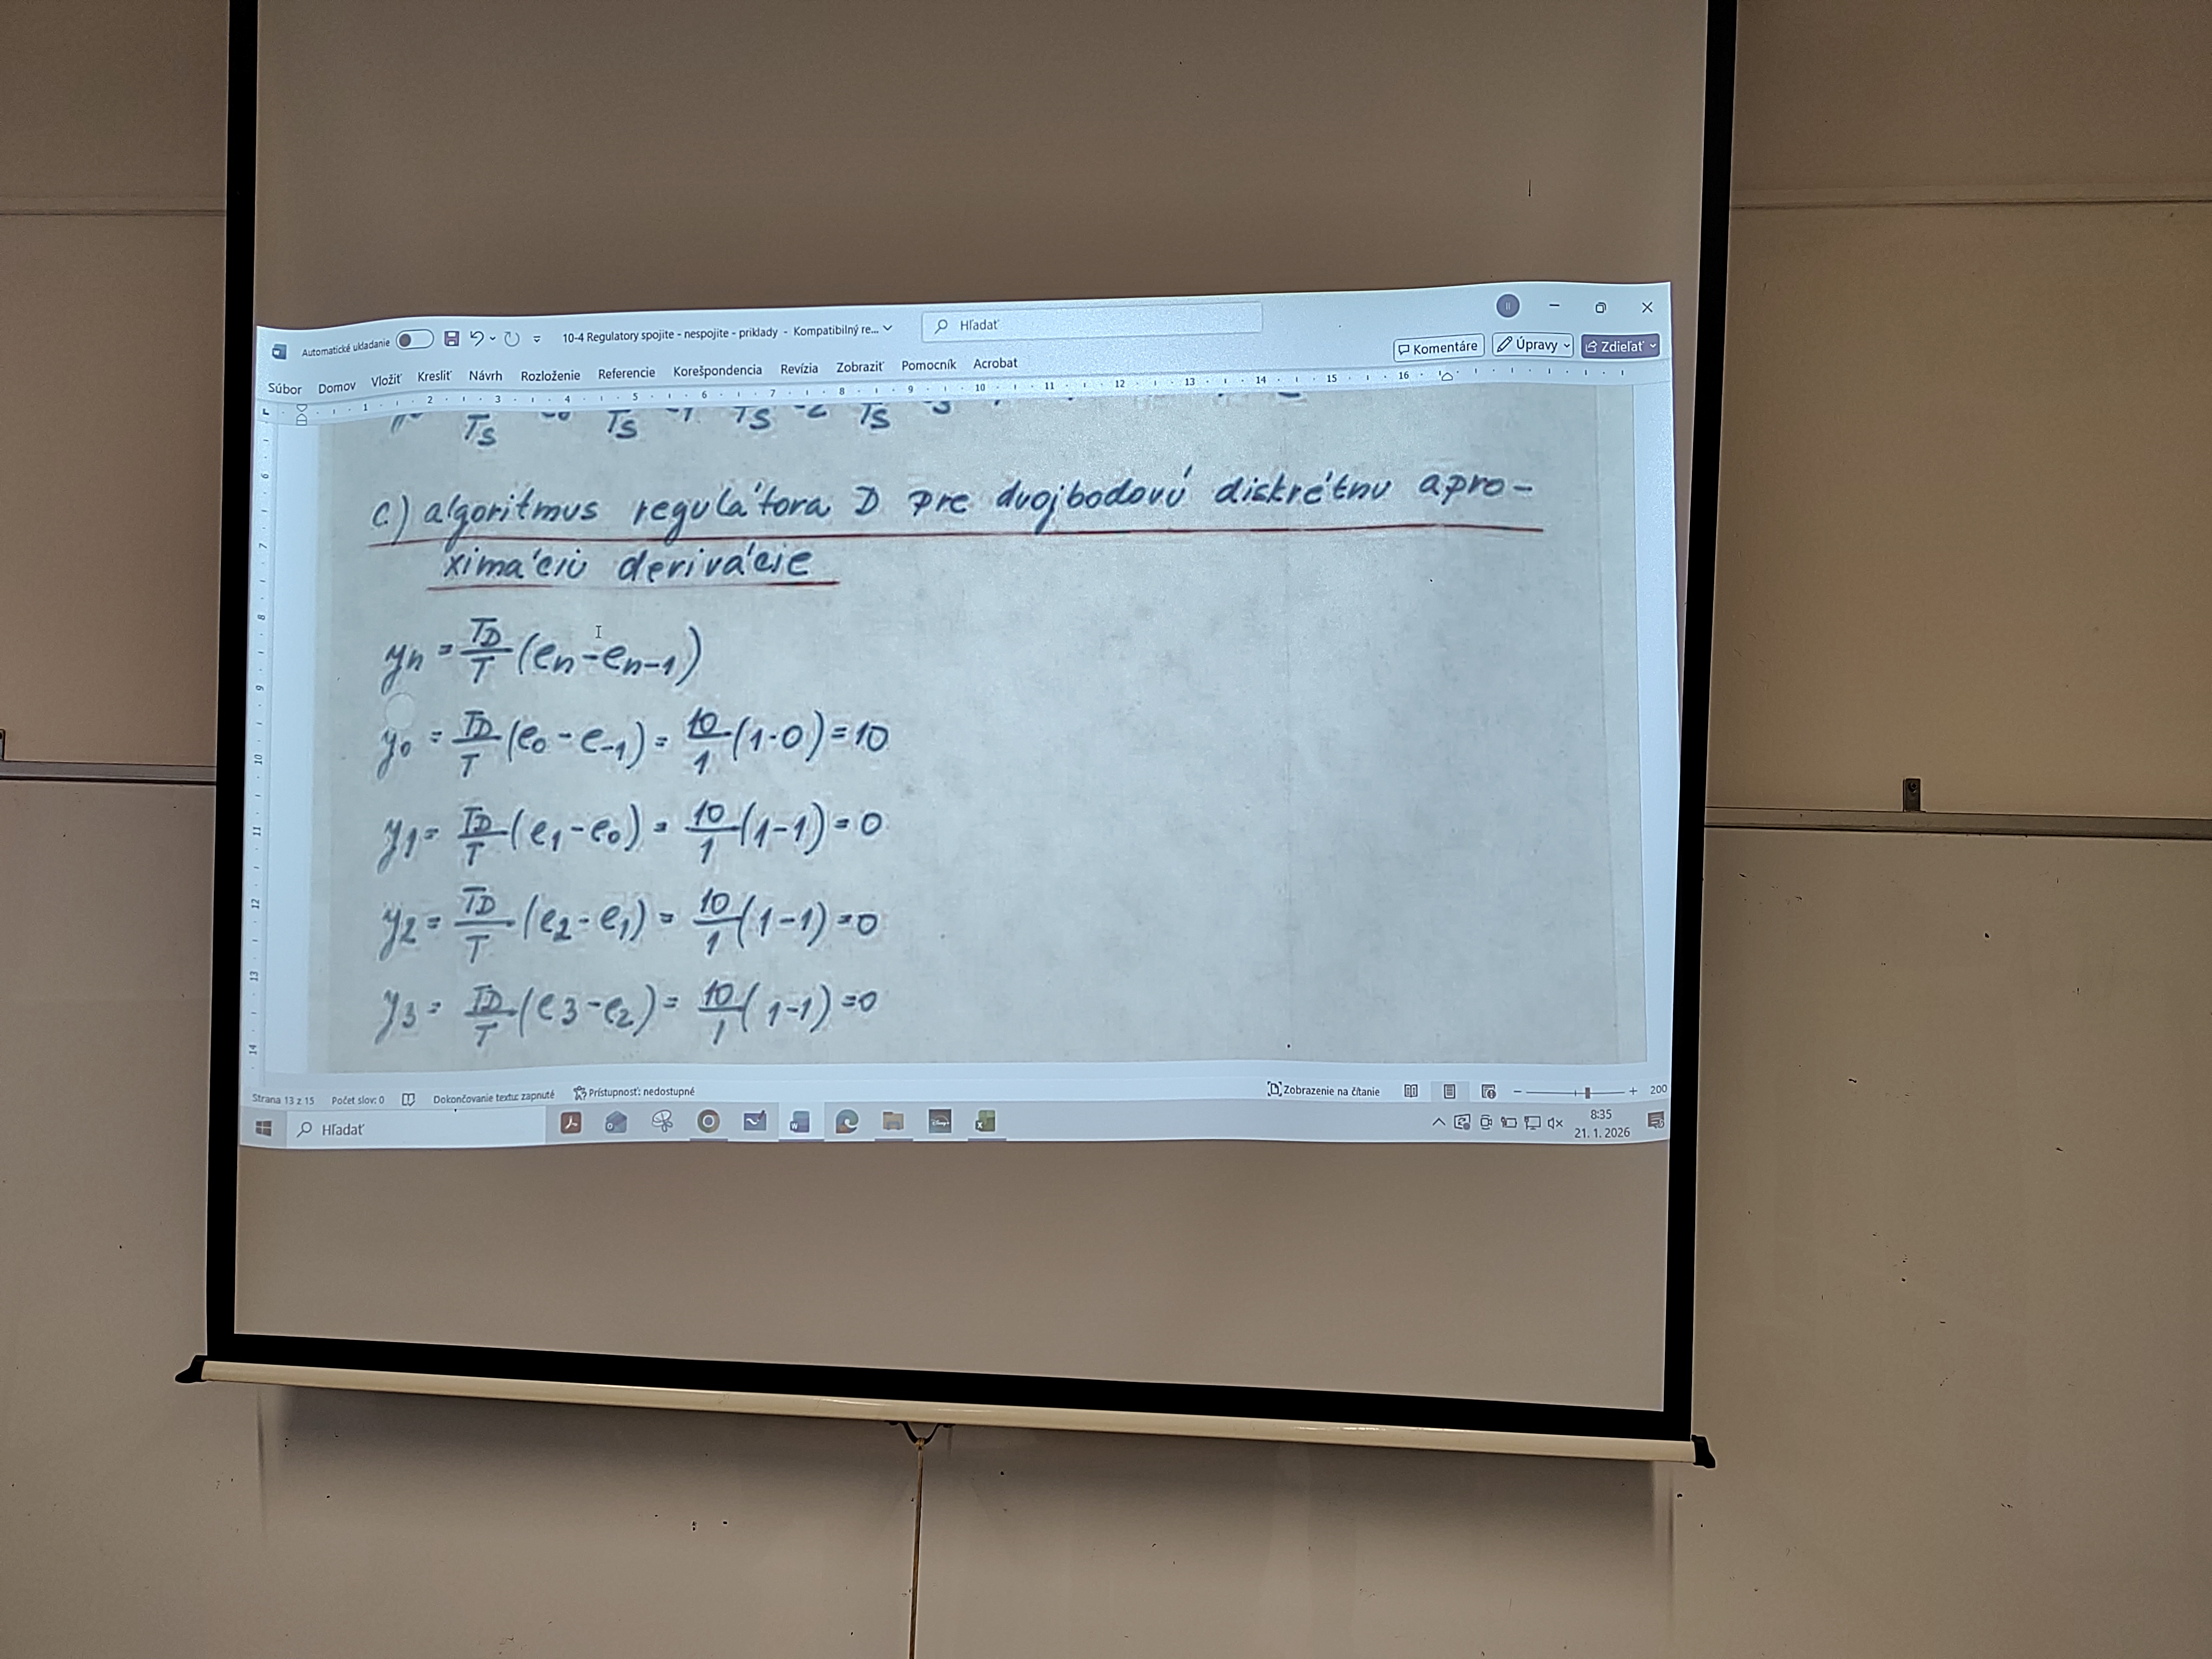 Automatické ukladanie
10-4 Regulatory spojite - nespojite - priklady - Kompatibilný re...
Hľadať
Súbor Domov Vložiť Kresliť Návrh Rozloženie Referencie Korešpondencia Revízia Zobraziť Pomocník Acrobat
Komentáre Úpravy Zdieľať
1 2 3 4 5 6 7 8 9 10 11 12 13 14 15 16
TS TS TS TS
c) algoritmus regulátora D pre dvojbodovú diskrétnu apro-
ximáciu derivácie
yn = TD/T (en - en-1)
y0 = TD/T (e0 - e-1) = 10/1 (1-0) = 10
y1 = TD/T (e1 - e0) = 10/1 (1-1) = 0
y2 = TD/T (e2 - e1) = 10/1 (1-1) = 0
y3 = TD/T (e3 - e2) = 10/1 (1-1) = 0
6 7 8 9 10 11 12 13 14
Strana 13 z 15 Počet slov: 0 Dokončovanie textu: zapnuté Prístupnosť: nedostupné Zobrazenie na čítanie 200
Hľadať
8:35
21. 1. 2026